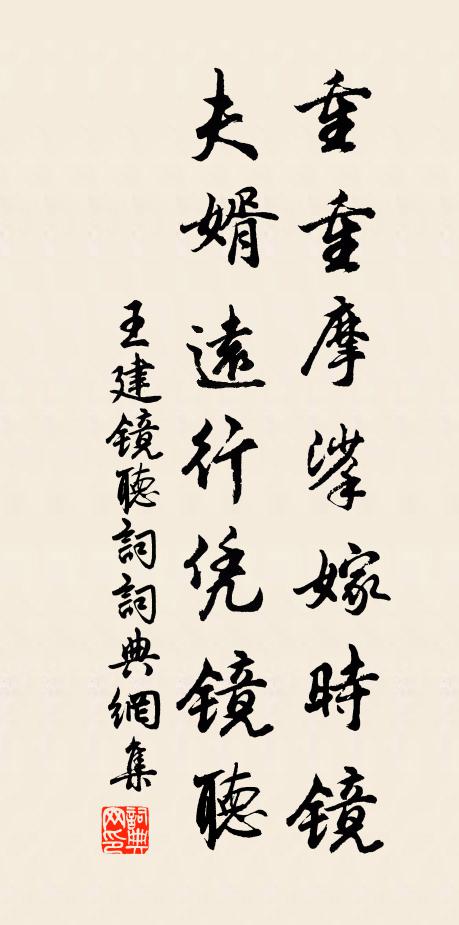 重重摩挲嫁時鏡
夫婿遠行凭鏡聽
王建鏡聽詞詞典網集
詞典網印